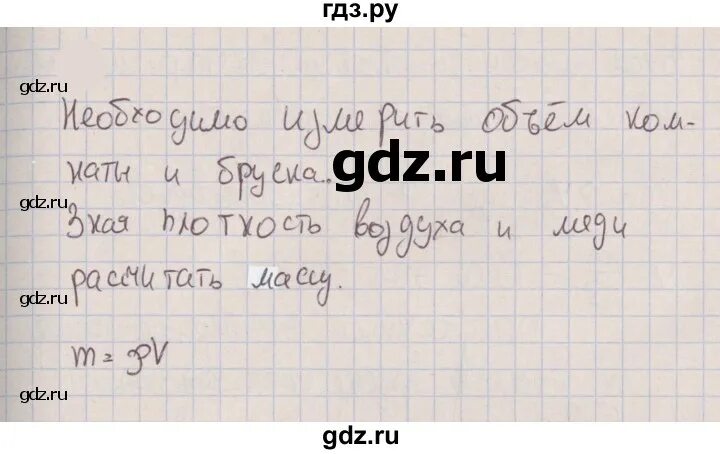 гдз.ру
gdz.ru
Необходимо измерить объём ком-
gdz.ru
наты и бруска.
gdz.ru
gdz.ru
Зная плотность воздуха и меди
gdz.ru
рассчитать массу.
gdz.ru
gdz.ru
m = ρV
gdz.ru
gdz.ru
gdz.ru